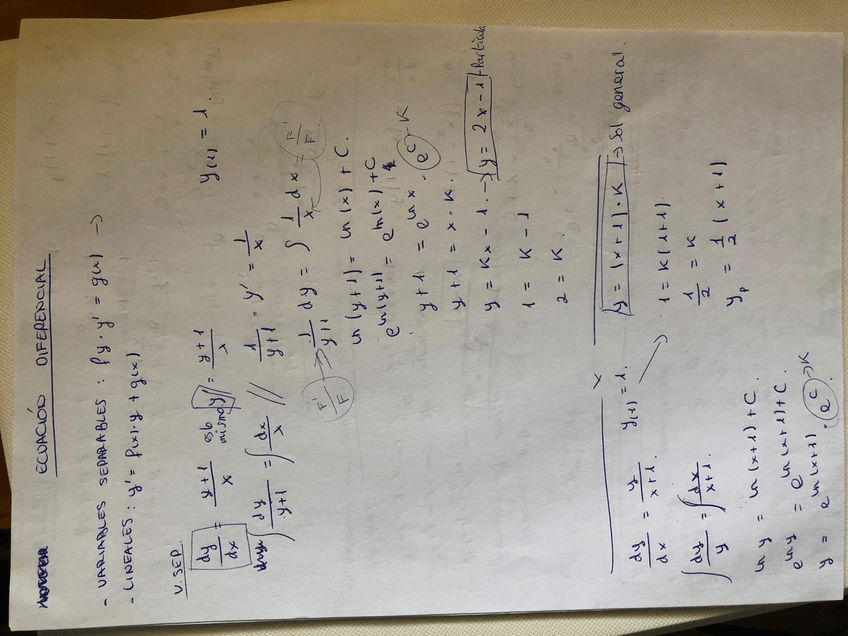 ECUACIÓN DIFERENCIAL
- VARIABLES SEPARABLES : f y · y' = g(x) →
- LINEALES : y' = f(x) · y + g(x)
V. SEP.
dy/dx = y+1/x es lo mismo y' = y+1/x y(1) = 1.
∫ dy/y+1 = ∫ dx/x // 1/y+1 · y' = 1/x
F'/F → 1/y+1 dy = ∫ 1/x dx = F'/F
ln (y+1) = ln (x) + C.
e^ln(y+1) = e^ln(x) + C
y+1 = e^ln x · e^C → K
y+1 = x · K.
y = Kx - 1. → y = 2x - 1 → Particular
1 = K - 1
2 = K.
dy/dx = y/x+1. y(1) = 1.
∫ dy/y = ∫ dx/x+1.
ln y = ln (x+1) + C.
e^ln y = e^ln (x+1) + C.
y = e^ln (x+1) · e^C → K
y = (x+1) · K → Sol general.
1 = K (1+1)
1/2 = K
yp = 1/2 (x+1)